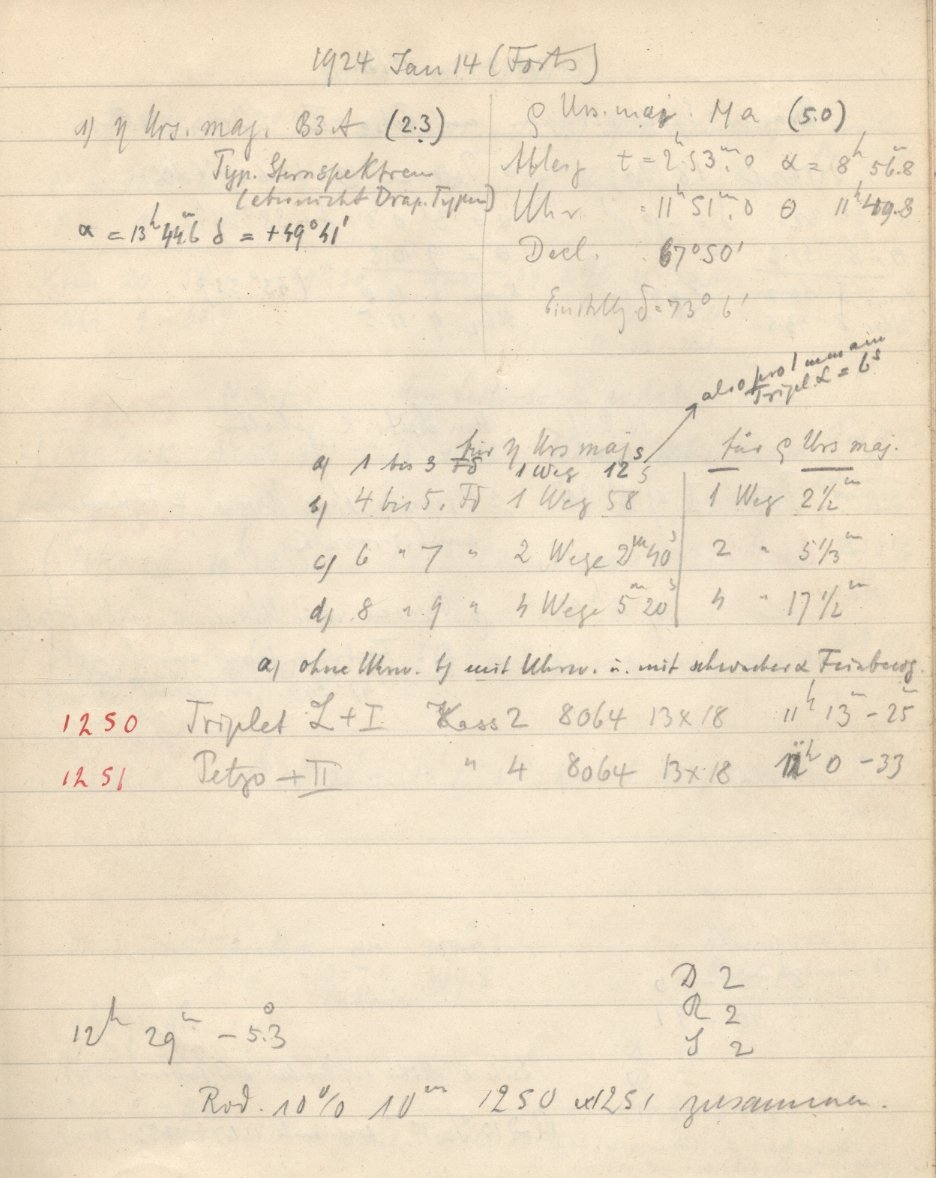 1924 Jan 14 (Forts)
1) η Urs. maj. B3A (2.3)
Typ. Sternspektren
(etwa nicht Drap. Typen)
α = 13h 44m.6 δ = +49°41'
ρ Urs. maj. Ma (5.0)
Ablesg t = 2h 53m.0 α = 8h 56m.8
Uhr = 11h 51m.0 θ 11h 49.8
Decl. 67°50'
Einstllg δ = 73° 6'
also pro 1 mm am
Triplet = 6s
für η Urs maj. für ρ Urs maj.
a) 1 bis 3 Fd 1 Weg 12s
b) 4 bis 5. Fd 1 Weg 58s 1 Weg 2 1/2m
c) 6 " 7 " 2 Wege 2m 40s 2 " 5 1/3m
d) 8 " 9 " 4 Wege 5m 20s 4 " 17 1/2m
a) ohne Uhrw. b) mit Uhrw. u. mit schwacher α Feinbewg.
1250 Triplet L+I Kass 2 8064 13x18 11h 13m - 25m
1251 Petzo + II " 4 8064 13x18 0 - 33
D 2
R 2
S 2
12h 29m - 5°.3
Rod. 10% 10m 1250 1251 zusammen.